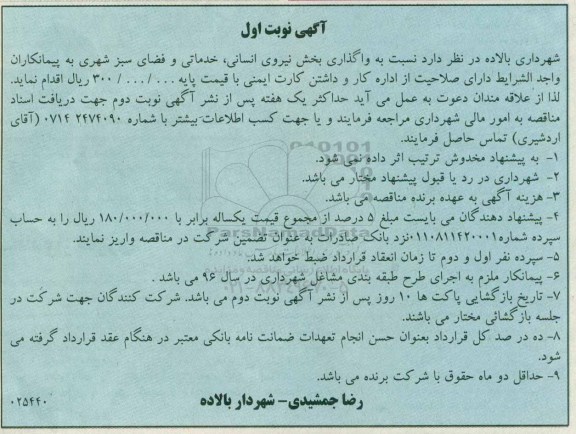 آگهی نوبت اول
شهرداری بالاده در نظر دارد نسبت به واگذاری بخش نیروی انسانی، خدماتی و فضای سبز شهری به پیمانکاران
واجد الشرایط دارای صلاحیت از اداره کار و داشتن کارت ایمنی با قیمت پایه ۳۰۰/۰۰۰/۰۰۰ ریال اقدام نماید.
لذا از علاقه مندان دعوت به عمل می آید حداکثر یک هفته پس از نشر آگهی نوبت دوم جهت دریافت اسناد
مناقصه به امور مالی شهرداری مراجعه فرمایند و یا جهت کسب اطلاعات بیشتر با شماره ۲۴۷۴۰۹۰ ۰۷۱۴ (آقای
اردشیری) تماس حاصل فرمایند.
۱- به پیشنهاد مخدوش ترتیب اثر داده نمی شود.
۲- شهرداری در رد یا قبول پیشنهاد مختار می باشد.
۳- هزینه آگهی به عهده برنده مناقصه می باشد.
۴- پیشنهاد دهندگان می بایست مبلغ ۵ درصد از مجموع قیمت یکساله برابر با ۱۸۰/۰۰۰/۰۰۰ ریال را به حساب
سپرده شماره ۰۱۱۰۸۱۱۴۲۰۰۰۱ نزد بانک صادرات به عنوان تضمین شرکت در مناقصه واریز نمایند.
۵- سپرده نفر اول و دوم تا زمان انعقاد قرارداد ضبط خواهد شد.
۶- پیمانکار ملزم به اجرای طرح طبقه بندی مشاغل شهرداری در سال ۹۶ می باشد .
۷- تاریخ بازگشایی پاکت ها ۱۰ روز پس از نشر آگهی نوبت دوم می باشد. شرکت کنندگان جهت شرکت در
جلسه بازگشائی مختار می باشند.
۸- ده در صد کل قرارداد بعنوان حسن انجام تعهدات ضمانت نامه بانکی معتبر در هنگام عقد قرارداد گرفته می
شود.
۹- حداقل دو ماه حقوق با شرکت برنده می باشد.
رضا جمشیدی- شهردار بالاده
۰۲۵۴۴۰
ParsNamadData